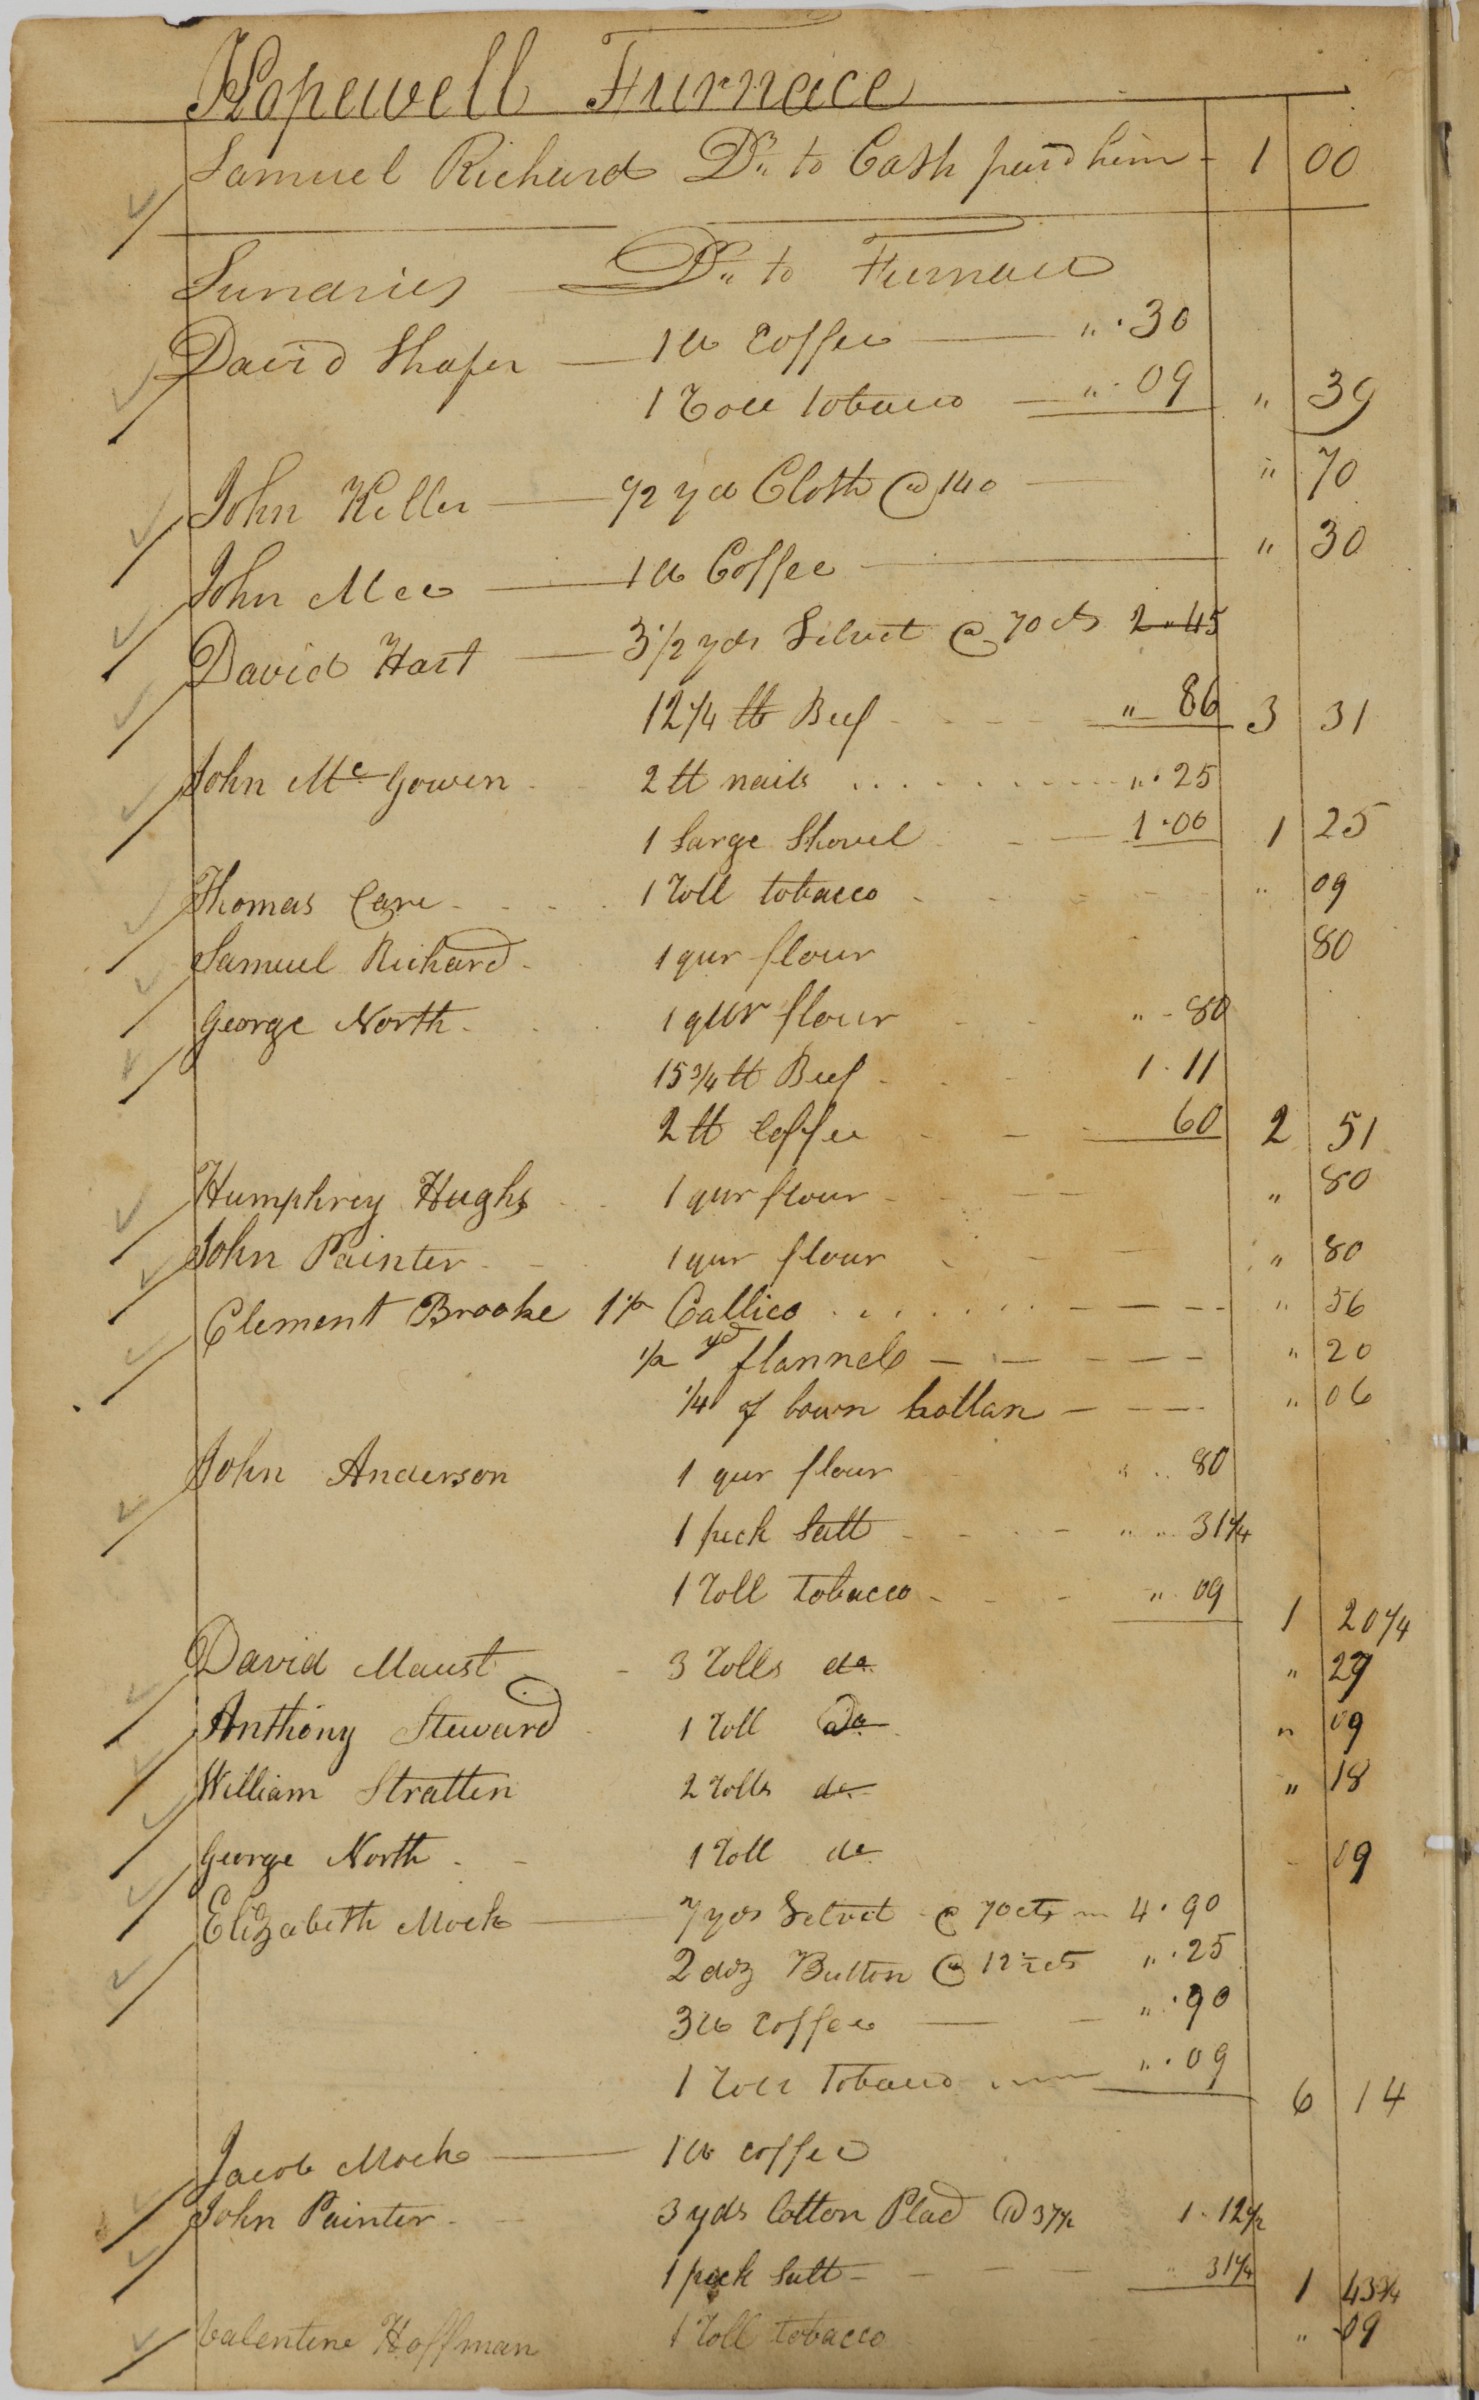 Hopewell Furnace
Samuel Richard Dr. to Cash paid him - 1 00
Sundries Dr. to Furnace
David Shafer 1 lb Coffee " . 30
1 Roll tobacco " . 09 " 39
John Keller 1/2 yd Cloth @ 140 " 70
John Mee 1 lb Coffee " 30
David Hart 3 1/2 yds Velvet @ 70 cts 2 " 45
12 1/4 lb Beef " 86 3 31
John Mc Gowen 2 lb nails " . 25
1 Large Shovel 1 . 00 1 25
Thomas Care 1 Roll tobacco " 09
Samuel Richard 1 qur flour 80
George North 1 qur flour " - 80
15 3/4 lb Beef 1 . 11
2 lb Coffee 60 2 51
Humphrey Hughs 1 qur flour " 80
John Painter 1 qur flour " 80
Clement Brooke 1 1/2 Callico " 56
1/2 yd flannel " 20
1/4 of bown hollan " 06
John Anderson 1 qur flour " 80
1 peck Salt " 31 1/4
1 Roll tobacco " 09 1 20 1/4
David Maust 3 Rolls do " 27
Anthony Steward 1 Roll Do " 09
William Stratten 2 Rolls do " 18
George North 1 Roll do 09
Elizabeth Mock 7 yds Velvet @ 70 cts 4 . 90
2 doz Button @ 12 1/2 cts " . 25
3 lb Coffee " . 90
1 Roll Tobacco " . 09 6 14
Jacob Mock 1 lb coffee
John Painter 3 yds Cotton Plad @ 37 1/2 1 . 12 1/2
1 peck Salt " 31 1/4 1 43 3/4
Valentine Hoffman 1 Roll tobacco " 09